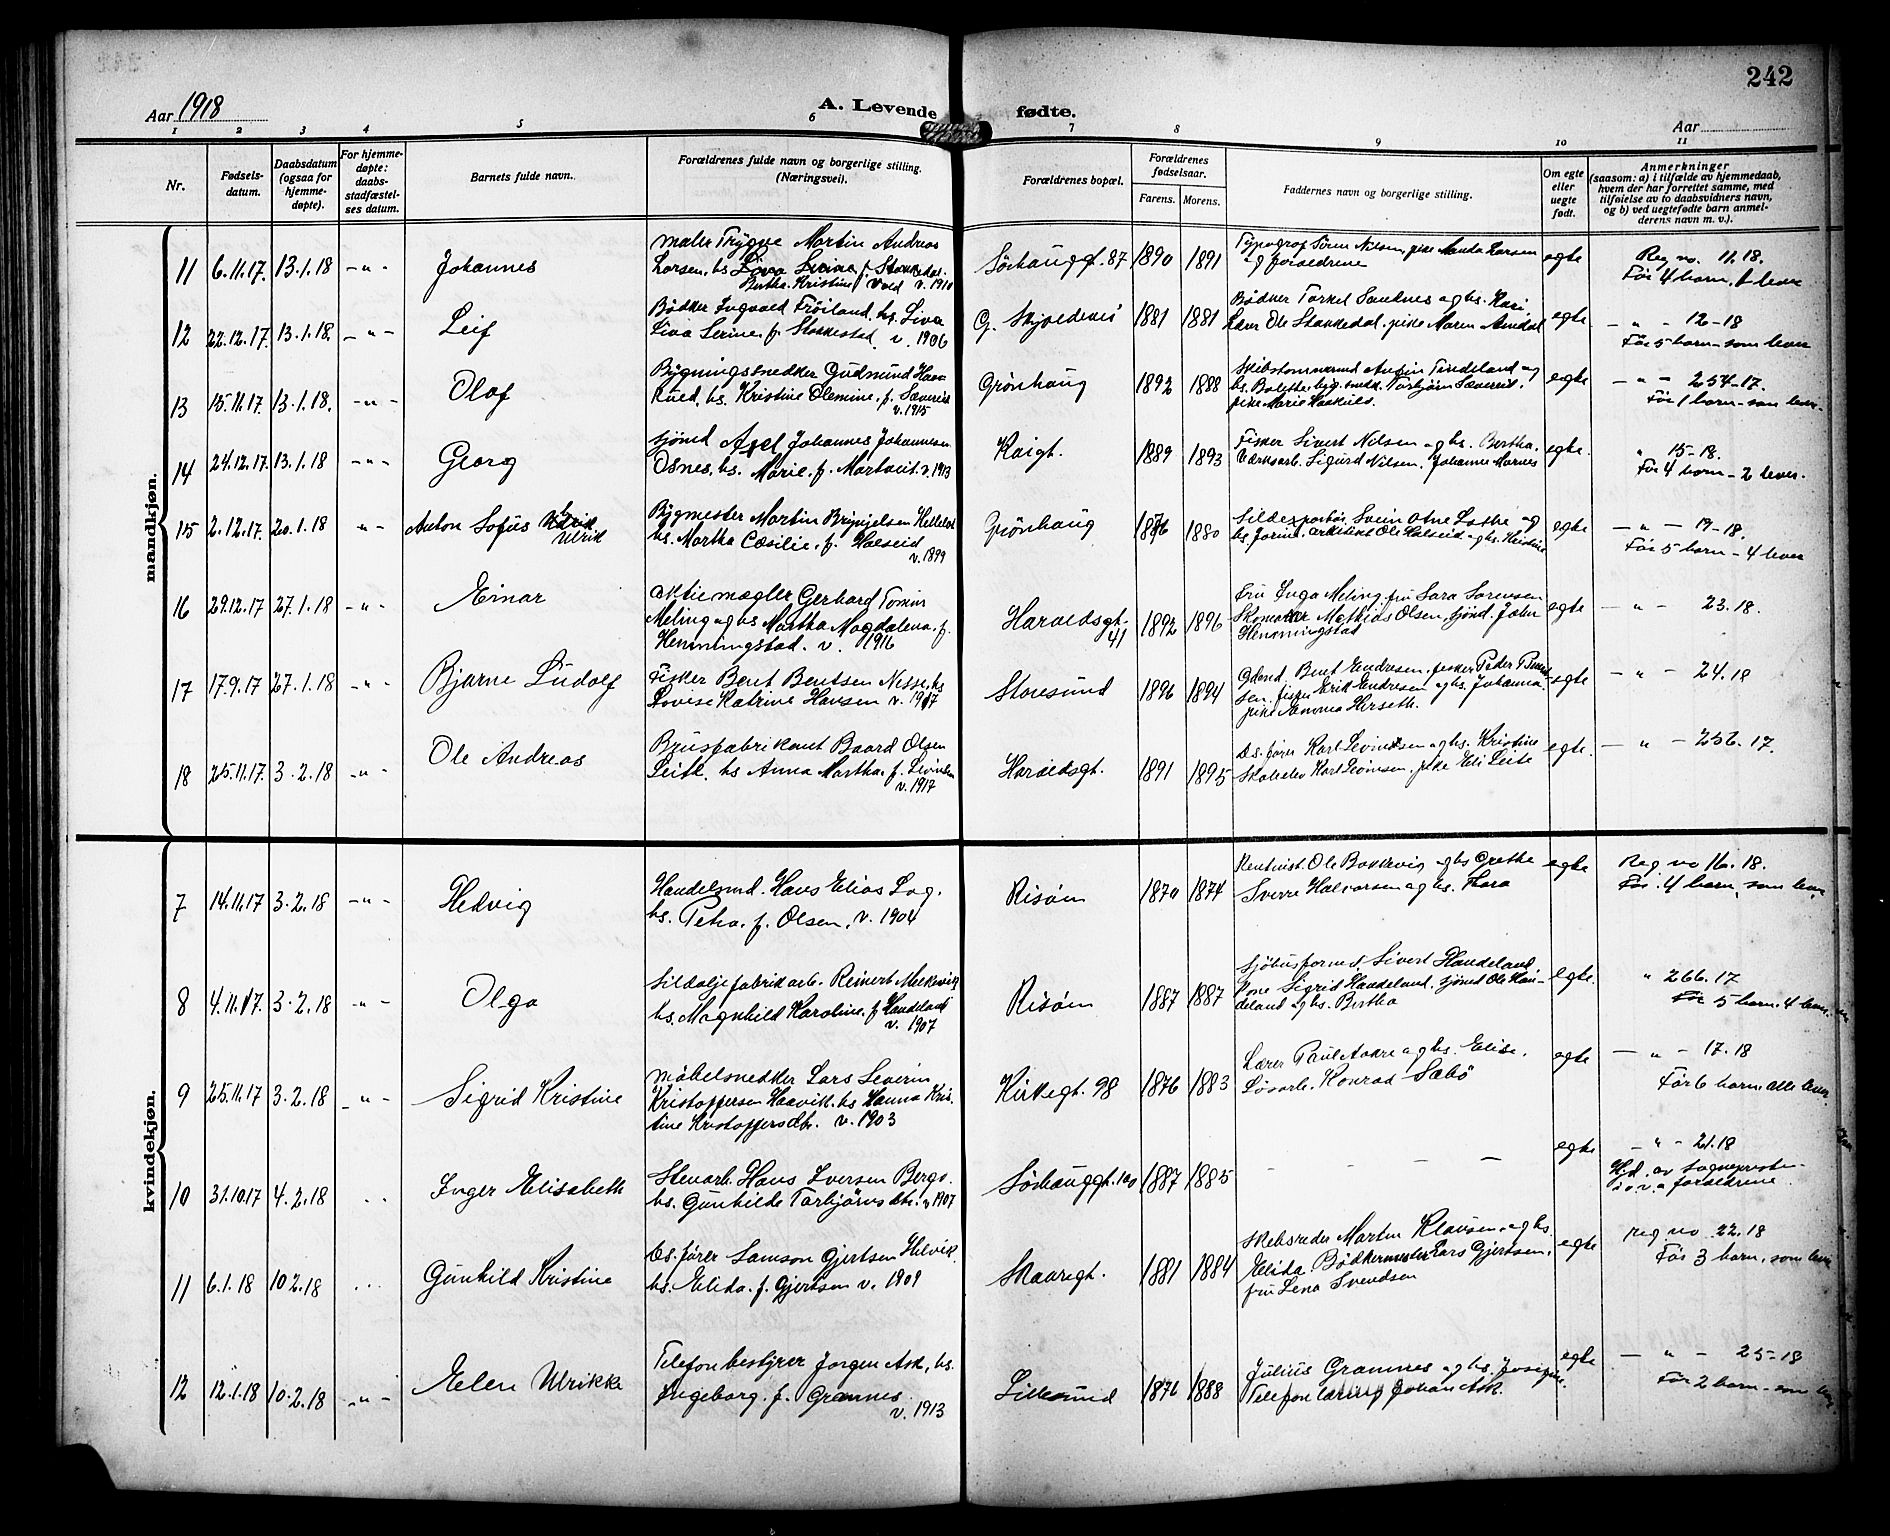 242
Aar 1918
A. Levende fødte.
Aar
1 2 3 4 5 6 7 8 9 10 11
Nr.
Fødsels-
datum.
Daabsdatum
(ogsaa for
hjemme-
døpte).
For hjemme-
døpte:
daabs-
stadfæstel-
ses datum.
Barnets fulde navn.
Forældrenes fulde navn og borgerlige stilling.
(Næringsvei).
Forældrenes bopæl.
Forældrenes
fødselsaar.
Farens. Morens.
Faddernes navn og borgerlige stilling.
Om egte
eller
uegte
født.
Anmerkninger
(saasom: a) i tilfælde av hjemmedaab,
hvem der har forrettet samme, med
tilføielse av to daabsvidners navn,
og b) ved uegtefødte barn anmel-
derens navn m. v.).
mandkjøn.
11 6.11.17. 13.1.18 -"- Johannes
maler Trygve Martin Andreas
Larsen, hs
Bertha Kristine v. 1910
Sørhauggt. 87 1890 1891
Typograf Sören Nilsen, pike Larsen
og forældrene
egte
Reg no. 11.18.
Før 4 barn, 1 lever
12 22.12.17. 13.1.18. -"- Leif
Bødker Ingvald Frøiland, hs. Liva
Liva Serine f. Stakkestad v. 1906
G. Skjoldevei 1881 1881
Bødker Torkel Sandnes og hs. Kari
Ole Stakkedal. pike Maren
egte
- " - 12-18
Før 5 barn - som lever
13 15.11.17. 13.1.18. -"- Olaf
Bygningssnedker Gudmund
hs. Kristine Olemine. f. Sæverud
v. 1915
Grønhaug 1892 1888
Skibstømmermand
hs. Bolette, byg. snedk. Torbjørn Sæverud.
pike Marie
egte
- " - 254-17.
Før 1 barn - som lever.
14 24.12.17. 13.1.18 -"- Georg
sjømd Axel Johannes Johannesen
Osnes. hs. Marie. f. v. 1913
Kaigt. 1889 1893
Fisker Sivert Nilsen og hs. Bertha.
Værksarb. Sigurd Nilsen. Johanne
egte.
" 15-18.
Før 4 barn - 2 lever.
15 2.12.17. 20.1.18 -"- Anton Sofus Ulrik
Bygmester Martin Brynjelsen
hs. Martha Cæsilie. f. Halseid
v. 1899
Grønhaug 1876 1880
Svein Lothe og
hs Jorine. arkitekt Ole Halseid og hs. Kristine
egte
- " - 19-18.
Før 5 barn - 4 lever
16 29.12.17 27.1.18 -"- Einar
aktiemægler Gerhard
Meling og hs Martha Magdalena. f.
Henningstad. v. 1916
Haraldsgt.
41
1892 1896
Fru Inga Meling, fru Sara Sørensen
Skomaker Mathias Olsen, sjömd. John
Henningstad
egte
- " - 23.18.
17 17.9.17 27.1.18 -"- Bjarne Ludolf
Fisker Bent Bentsen hs
Lovise Katrine Hansen v. 1917
Storesund 1896 1894
Bent Endresen, fisker Peder
sen, fisker Erik Endresen og hs. Johanna.
pike Emma
egte
- " - 24.18
18 25.11.17. 3.2.18 -"- Ole Andreas
Brusfabrikant Baard Olsen
hs Anna Martha. f.
v. 1917
Haraldsgt. 1891 1895
Ds. fører Karl og hs. Kristine
Skoleelev Karl pike Eli
egte.
- " - 256.17.
kvindekjøn.
7 14.11.17 3.2.18 -"- Hedvig
Handelsmd. Hans Elias
hs. Petra. f. Olsen. v. 1904
Risøen 1870 1874
Ole Bokkevig og hs Grethe
Sverre Halvorsen og hs. Thora
egte
Reg no 16.18.
Før 4 barn, som lever.
8 4.11.17. 3.2.18 -"- Olga
Sildoljefabrikarb. Reinert
hs. Magnhild Karoline. f Handeland
v. 1907
Risøen 1887 1887
Sjöhusformd. Sivert Handeland
kone Sigrid Handeland. sjömd Ole Han-
deland og hs. Bertha
egte.
" 266.17
Før 5 barn. 4 lever.
9 25.11.17 3.2.18 -"- Sigrid Kristine
møbelsnedker Lars Severin
Kristoffersen Haavik. hs Hanna Kris-
tine Kristoffersdtr. v. 1903
Kirkegt. 98 1876 1883
Lærer Paul Aakre og hs. Elise.
Løsarb. Konrad Sæbø
egte
- " - 17.18
Før 6 barn alle lever.
10 31.10.17 4.2.18 Inger Elisabeth
Stenarb. Hans Iversen Berge.
hs. Gunhilde Torbjörnsdtr. v 1907
Sörhauggt. 100 1887 1885
- - - -
egte
- " - 21.18
Hjd. av Sogneprest
forældrene
11 6.1.18 10.2.18 Gunhild Kristine
Ds. fører Samson Gjertsen
hs. Elida. f. Gjertsen v. 1909
Skaaregt. 1881 1884
Skibsreder Martin Klausen. og hs
Elida. Bødkermester Lars Gjertsen,
fru Lena Svendsen
egte
reg no 22.18
Før 3 barn, som lever
12 12.1.18 10.2.18 -"- Elen Ulrikke
Telefonbestyrer Jørgen Ask, hs.
Ingeborg. f. Grannes
v. 1913
Lillesund 1876 1888
Julius Grannes og hs. Josefine.
Telefon Johan Ask.
egte
- " - 25-18
Før 2 barn - som lever.